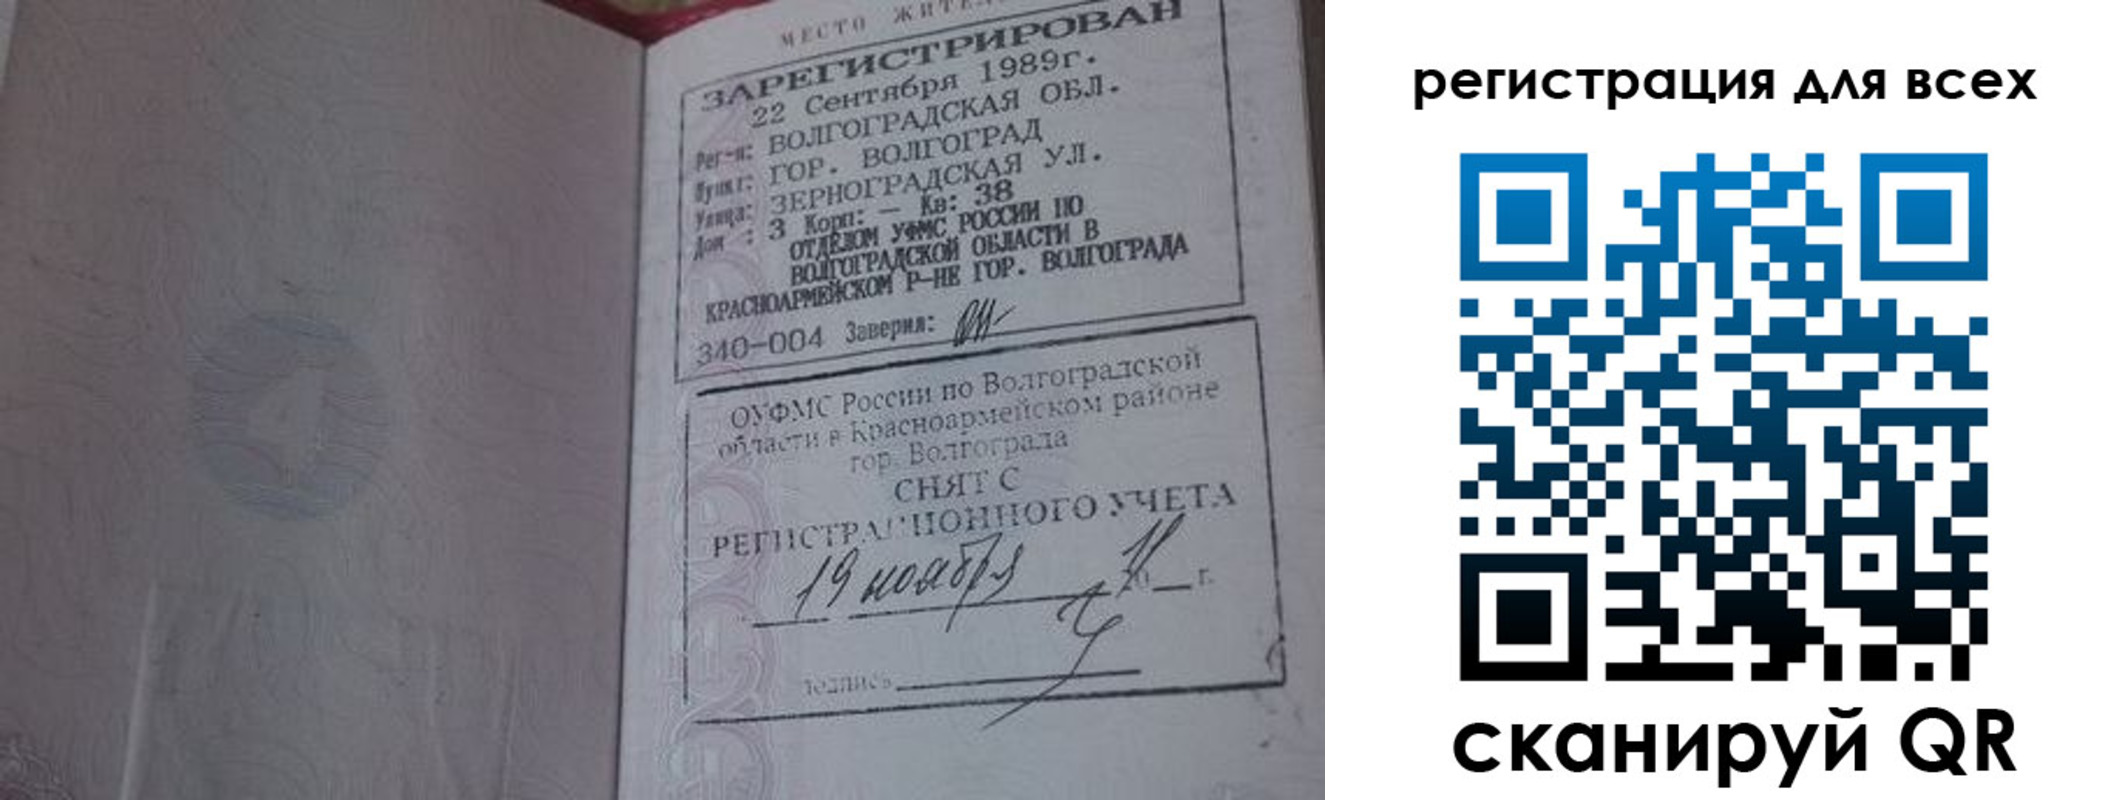 МЕСТО ЖИТЕЛ
ЗАРЕГИСТРИРОВАН
22 Сентября 1989г.
Рег-н: ВОЛГОГРАДСКАЯ ОБЛ.
Пункт: ГОР. ВОЛГОГРАД
Улица: ЗЕРНОГРАДСКАЯ УЛ.
Дом : 3 Корп: — Кв: 38
ОТДЕЛОМ УФМС РОССИИ ПО
ВОЛГОГРАДСКОЙ ОБЛАСТИ В
КРАСНОАРМЕЙСКОМ Р-НЕ ГОР. ВОЛГОГРАДА
340-004 Заверил:
ОУФМС России по Волгоградской
области в Красноармейском районе
гор. Волгограда
СНЯТ С
РЕГИСТРАЦИОННОГО УЧЕТА
19 ноября 20 г.
подпись
регистрация для всех
сканируй QR